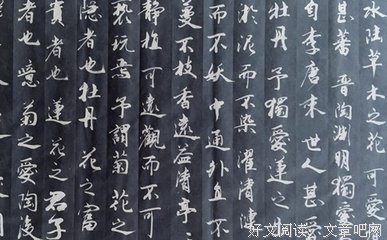 水陸草木之花可
甚蕃晉陶淵明獨愛
自李唐来世人甚愛
牡丹予獨愛蓮之
淤泥而不染濯清漣
而不妖中通外直不
蔓不枝香遠益清亭
静植可遠觀而不可
褻玩焉予謂菊花之
隱者也牡丹花之富
貴者也蓮花之君子
者也噫菊之愛陶後
好文阅读：文章吧网